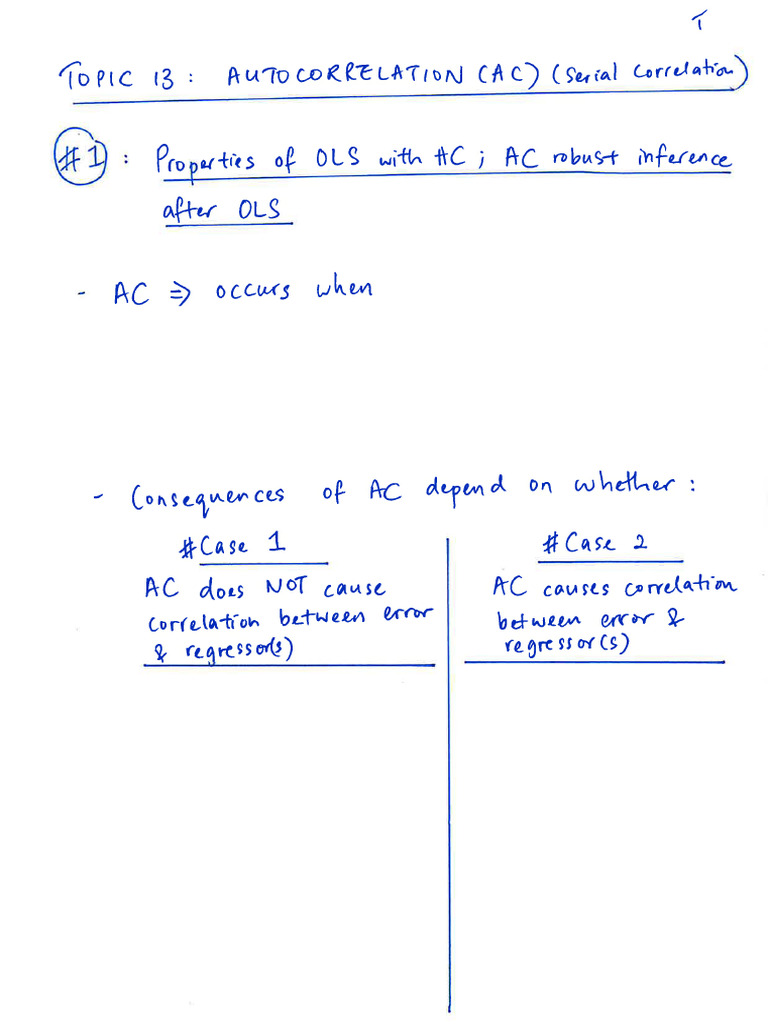 T
TOPIC 13 : AUTOCORRELATION (AC) (Serial Correlation)
#1 : Properties of OLS with AC ; AC robust inference
after OLS
- AC ⇒ occurs when
- Consequences of AC depend on whether :
#Case 1
AC does NOT cause
correlation between error
& regressor(s)
#Case 2
AC causes correlation
between error &
regressor(s)